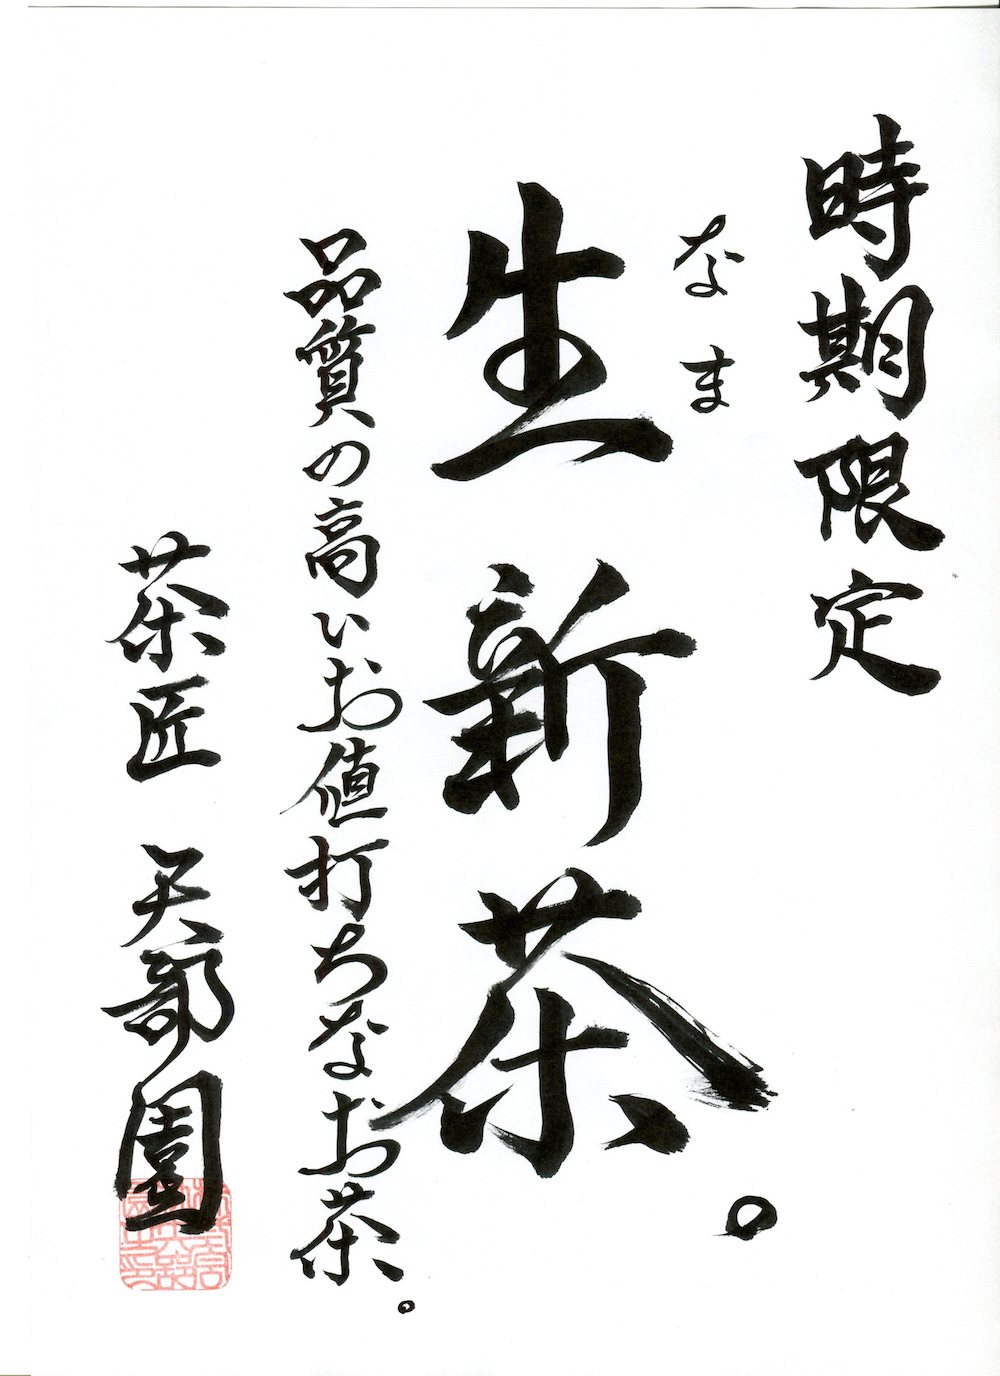 時期限定
なま
生新茶。
品質の高いお値打ちなお茶。
茶匠 天部園